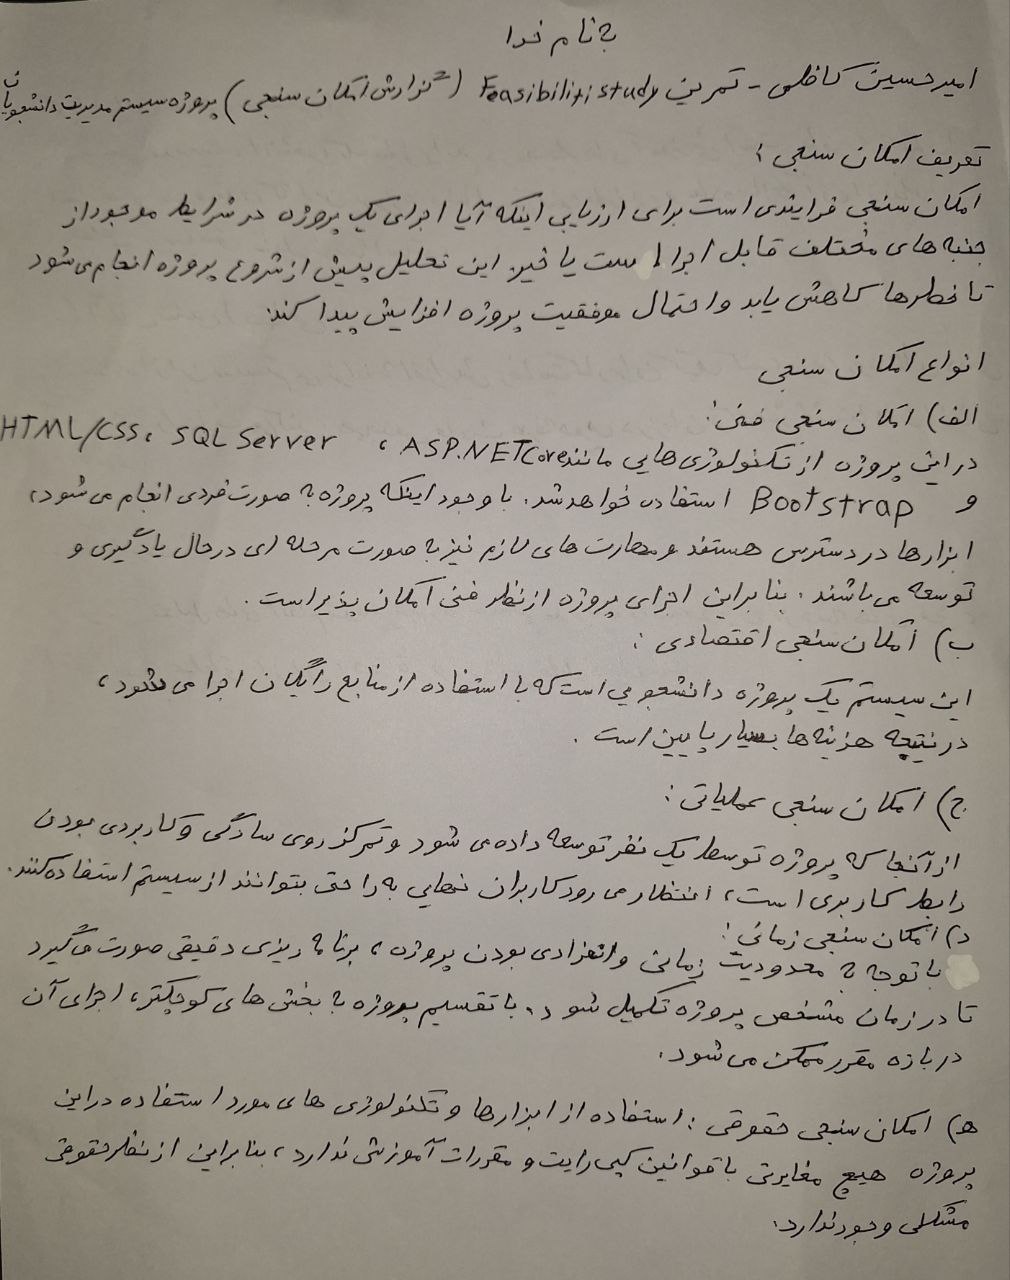 به نام خدا
امیرحسین کاظمی - تمرین Feasibiliti study (گزارش امکان سنجی) پروژه سیستم مدیریت دانشجویان
تعریف امکان سنجی :
امکان سنجی فرایندی است برای ارزیابی اینکه آیا اجرای یک پروژه در شرایط موجود از
جنبه های مختلف قابل اجرا است یا خیر. این تحلیل پیش از شروع پروژه انجام می شود
تا خطرها کاهش یابد و احتمال موفقیت پروژه افزایش پیدا کند.
انواع امکان سنجی
الف) امکان سنجی فنی :
در این پروژه از تکنولوژی هایی مانند ASP.NET Core ، SQL Server ، HTML/CSS
و Bootstrap استفاده خواهد شد. با وجود اینکه پروژه به صورت فردی انجام می شود،
ابزارها در دسترس هستند و مهارت های لازم نیز به صورت مرحله ای در حال یادگیری و
توسعه می باشند. بنابراین اجرای پروژه از نظر فنی امکان پذیر است.
ب) امکان سنجی اقتصادی :
این سیستم یک پروژه دانشجویی است که با استفاده از منابع رایگان اجرا می شود،
در نتیجه هزینه ها بسیار پایین است.
ج) امکان سنجی عملیاتی :
از آنجا که پروژه توسط یک نفر توسعه داده می شود و تمرکز روی سادگی و کاربردی بودن
رابط کاربری است، انتظار می رود کاربران نهایی به راحتی بتوانند از سیستم استفاده کنند.
د) امکان سنجی زمانی :
با توجه به محدودیت زمانی و انفرادی بودن پروژه، برنامه ریزی دقیقی صورت می گیرد
تا در زمان مشخص پروژه تکمیل شود. با تقسیم پروژه به بخش های کوچکتر، اجرای آن
در بازه مقرر ممکن می شود.
ه) امکان سنجی حقوقی : استفاده از ابزارها و تکنولوژی های مورد استفاده در این
پروژه هیچ مغایرتی با قوانین کپی رایت و مقررات آموزشی ندارد، بنابراین از نظر حقوقی
مشکلی وجود ندارد.